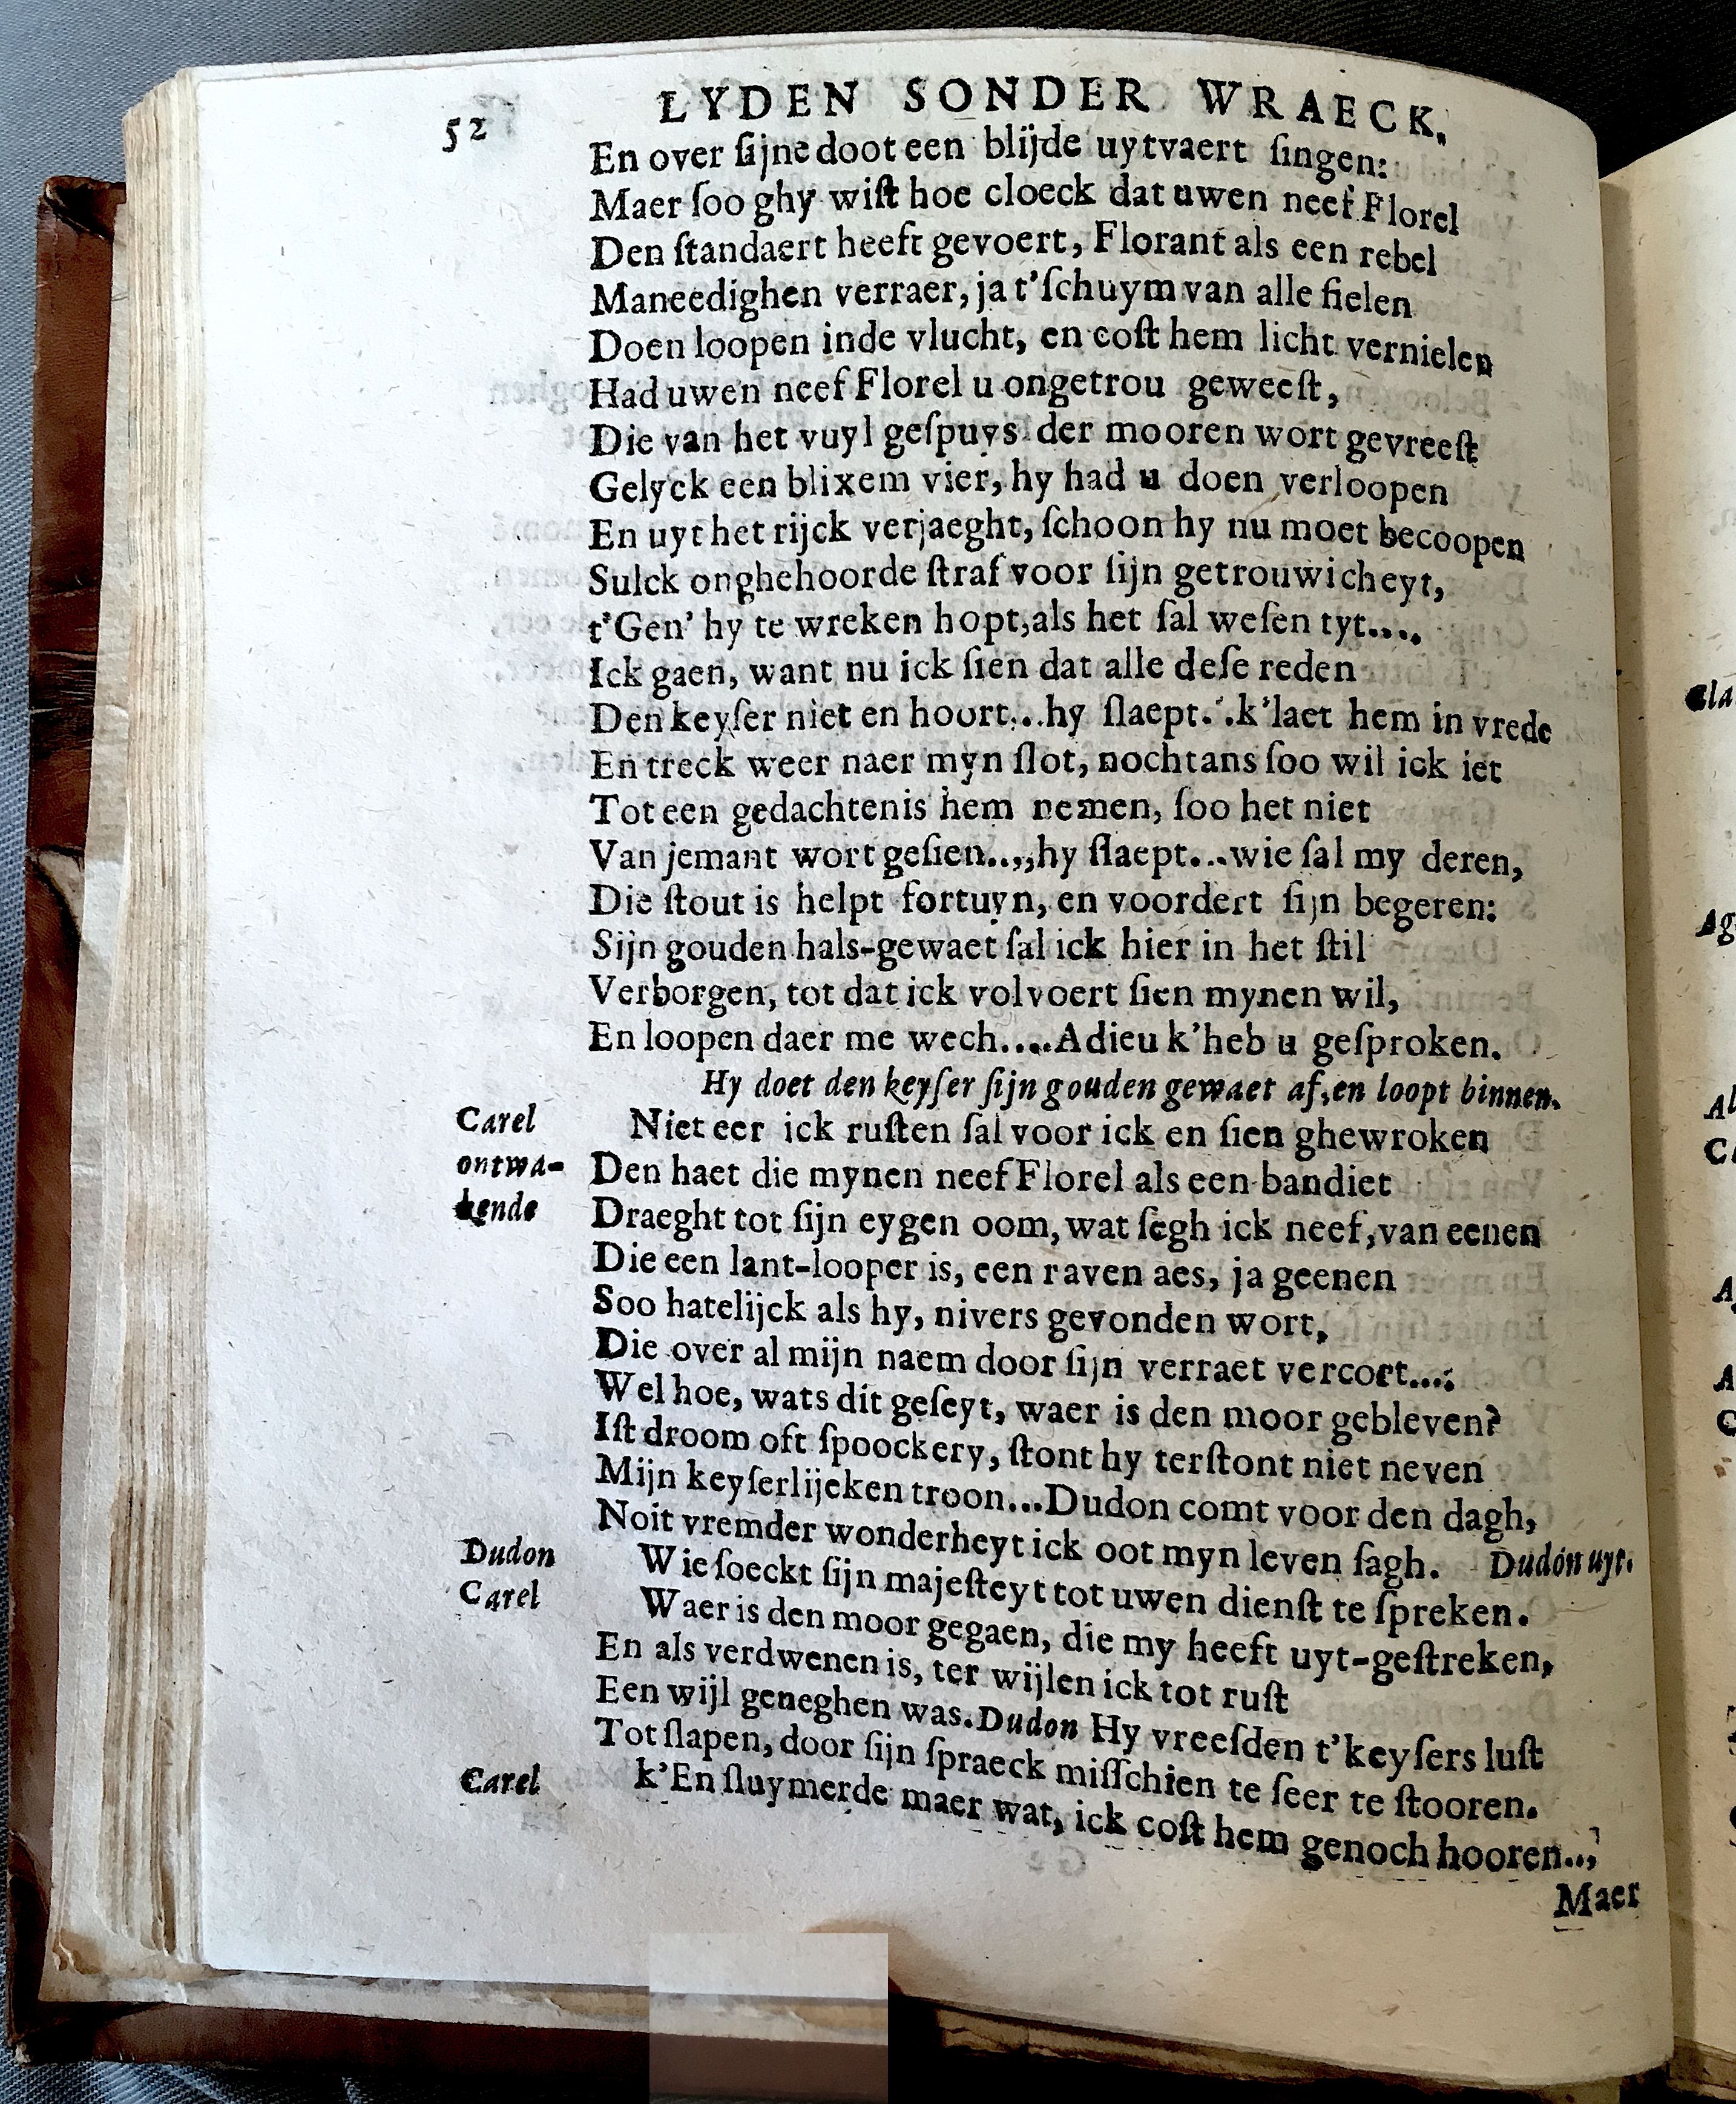 52 LYDEN SONDER WRAECK.
En over ſijne doot een blijde uytvaert ſingen:
Maer ſoo ghy wiſt hoe cloeck dat uwen neef Florel
Den ſtandaert heeft gevoert, Florant als een rebel
Maneedighen verraer, ja t'ſchuym van alle fielen
Doen loopen inde vlucht, en coſt hem licht vernielen
Had uwen neef Florel u ongetrou geweeſt,
Die van het vuyl geſpuys der mooren wort gevreeſt
Gelyck een blixem vier, hy had u doen verloopen
En uyt het rijck verjaeght, ſchoon hy nu moet becoopen
Sulck onghehoorde ſtraf voor ſijn getrouwicheyt,
t'Gen' hy te wreken hopt, als het ſal weſen tyt....
Ick gaen, want nu ick ſien dat alle deſe reden
Den keyſer niet en hoort...hy ſlaept...k'laet hem in vrede
En treck weer naer myn ſlot, nochtans ſoo wil ick iet
Tot een gedachtenis hem nemen, ſoo het niet
Van jemant wort geſien..,,hy ſlaept...wie ſal my deren,
Die ſtout is helpt fortuyn, en voordert ſijn begeren:
Sijn gouden hals-gewaet ſal ick hier in het ſtil
Verborgen, tot dat ick volvoert ſien mynen wil,
En loopen daer me wech....Adieu k'heb u geſproken.
Hy doet den keyſer ſijn gouden gewaet af, en loopt binnen.
Carel ontwakende Niet eer ick ruſten ſal voor ick en ſien ghewroken
Den haet die mynen neef Florel als een bandiet
Draeght tot ſijn eygen oom, wat ſegh ick neef, van eenen
Die een lant-looper is, een raven aes, ja geenen
Soo hatelijck als hy, nivers gevonden wort,
Die over al mijn naem door ſijn verraet vercort....
Wel hoe, wats dit geſeyt, waer is den moor gebleven?
Iſt droom oft ſpoockery, ſtont hy terſtont niet neven
Mijn keyſerlijcken troon...Dudon comt voor den dagh,
Noit vremder wonderheyt ick oot myn leven ſagh. Dudon uyt.
Dudon Wie ſoeckt ſijn majeſteyt tot uwen dienſt te ſpreken.
Carel Waer is den moor gegaen, die my heeft uyt-geſtreken,
En als verdwenen is, ter wijlen ick tot ruſt
Een wijl geneghen was. Dudon Hy vreeſden t'keyſers luſt
Tot ſlapen, door ſijn ſpraeck miſſchien te ſeer te ſtooren.
Carel k'En ſluymerde maer wat, ick coſt hem genoch hooren...
Maer